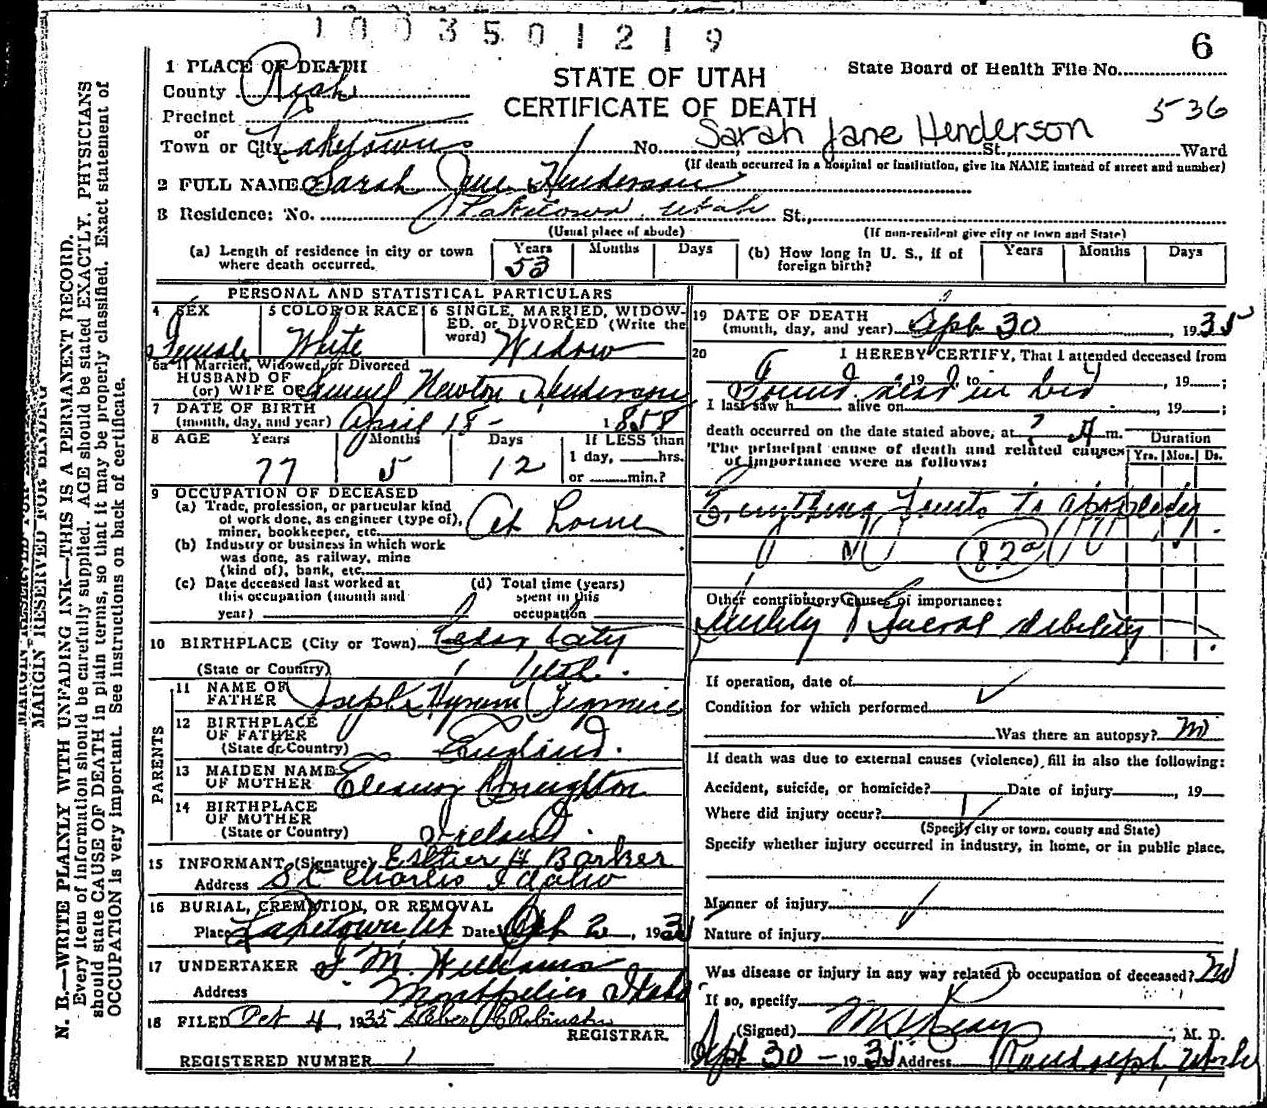 1003501219
6
1 PLACE OF DEATH
County Rich
STATE OF UTAH
State Board of Health File No.
CERTIFICATE OF DEATH
536
Precinct
or
Town or City Laketown No. Sarah Jane Henderson St. Ward
(If death occurred in a hospital or institution, give its NAME instead of street and number)
2 FULL NAME Sarah Jane Henderson
3 Residence: No. Laketown Utah St.,
(Usual place of abode) (If non-resident give city or town and State)
(a) Length of residence in city or town where death occurred. Years 53 Months Days (b) How long in U. S., if of foreign birth? Years Months Days
PERSONAL AND STATISTICAL PARTICULARS
4 SEX Female
5 COLOR OR RACE White
6 SINGLE, MARRIED, WIDOWED, or DIVORCED (Write the word) Widow
6a If Married, Widowed, or Divorced
HUSBAND OF
(or) WIFE OF Samuel Newton Henderson
7 DATE OF BIRTH
(month, day, and year) April 18 - 1858
8 AGE Years 77 Months 5 Days 12 If LESS than
1 day, hrs.
or min.?
9 OCCUPATION OF DECEASED
(a) Trade, profession, or particular kind
of work done, as engineer (type of),
miner, bookkeeper, etc. At home
(b) Industry or business in which work
was done, as railway, mine
(kind of), bank, etc.
(c) Date deceased last worked at
this occupation (month and
year)
(d) Total time (years)
spent in this
occupation
10 BIRTHPLACE (City or Town) Cedar City
(State or Country) Utah.
PARENTS
11 NAME OF
FATHER Joseph Hyrum
12 BIRTHPLACE
OF FATHER
(State or Country) England.
13 MAIDEN NAME
OF MOTHER Eleanor Houghton
14 BIRTHPLACE
OF MOTHER
(State or Country) Ireland.
15 INFORMANT (Signature) Esther H Barker
Address St Charles Idaho
16 BURIAL, CREMATION, OR REMOVAL
Place Laketown, Ut Date Oct 2, 1935
17 UNDERTAKER J M. Williams
Address Montpelier Idaho
18 FILED Oct 4, 1935 Robinson
REGISTRAR.
REGISTERED NUMBER 1
19 DATE OF DEATH
(month, day, and year) Sept 30, 1935
20 I HEREBY CERTIFY, That I attended deceased from
, 19 , to , 19 ;
Found dead in bed
I last saw h alive on , 19 ;
death occurred on the date stated above, at ? A m.
The principal cause of death and related causes
of importance were as follows:
Duration
Yrs. Mos. Ds.
Everything points to apoplexy
82a
Other contributory causes of importance:
Senility & General debility
If operation, date of
Condition for which performed
Was there an autopsy? No
If death was due to external causes (violence), fill in also the following:
Accident, suicide, or homicide? Date of injury , 19
Where did injury occur?
(Specify city or town, county and State)
Specify whether injury occurred in industry, in home, or in public place.
Manner of injury
Nature of injury
Was disease or injury in any way related to occupation of deceased? No
If so, specify
(Signed) , M. D.
Sept 30 - 1935 Address Randolph, Utah
MARGIN RESERVED FOR BINDING
N. B.—WRITE PLAINLY WITH UNFADING INK—THIS IS A PERMANENT RECORD.
Every item of information should be carefully supplied. AGE should be stated EXACTLY. PHYSICIANS
should state CAUSE OF DEATH in plain terms, so that it may be properly classified. Exact statement of
OCCUPATION is very important. See instructions on back of certificate.